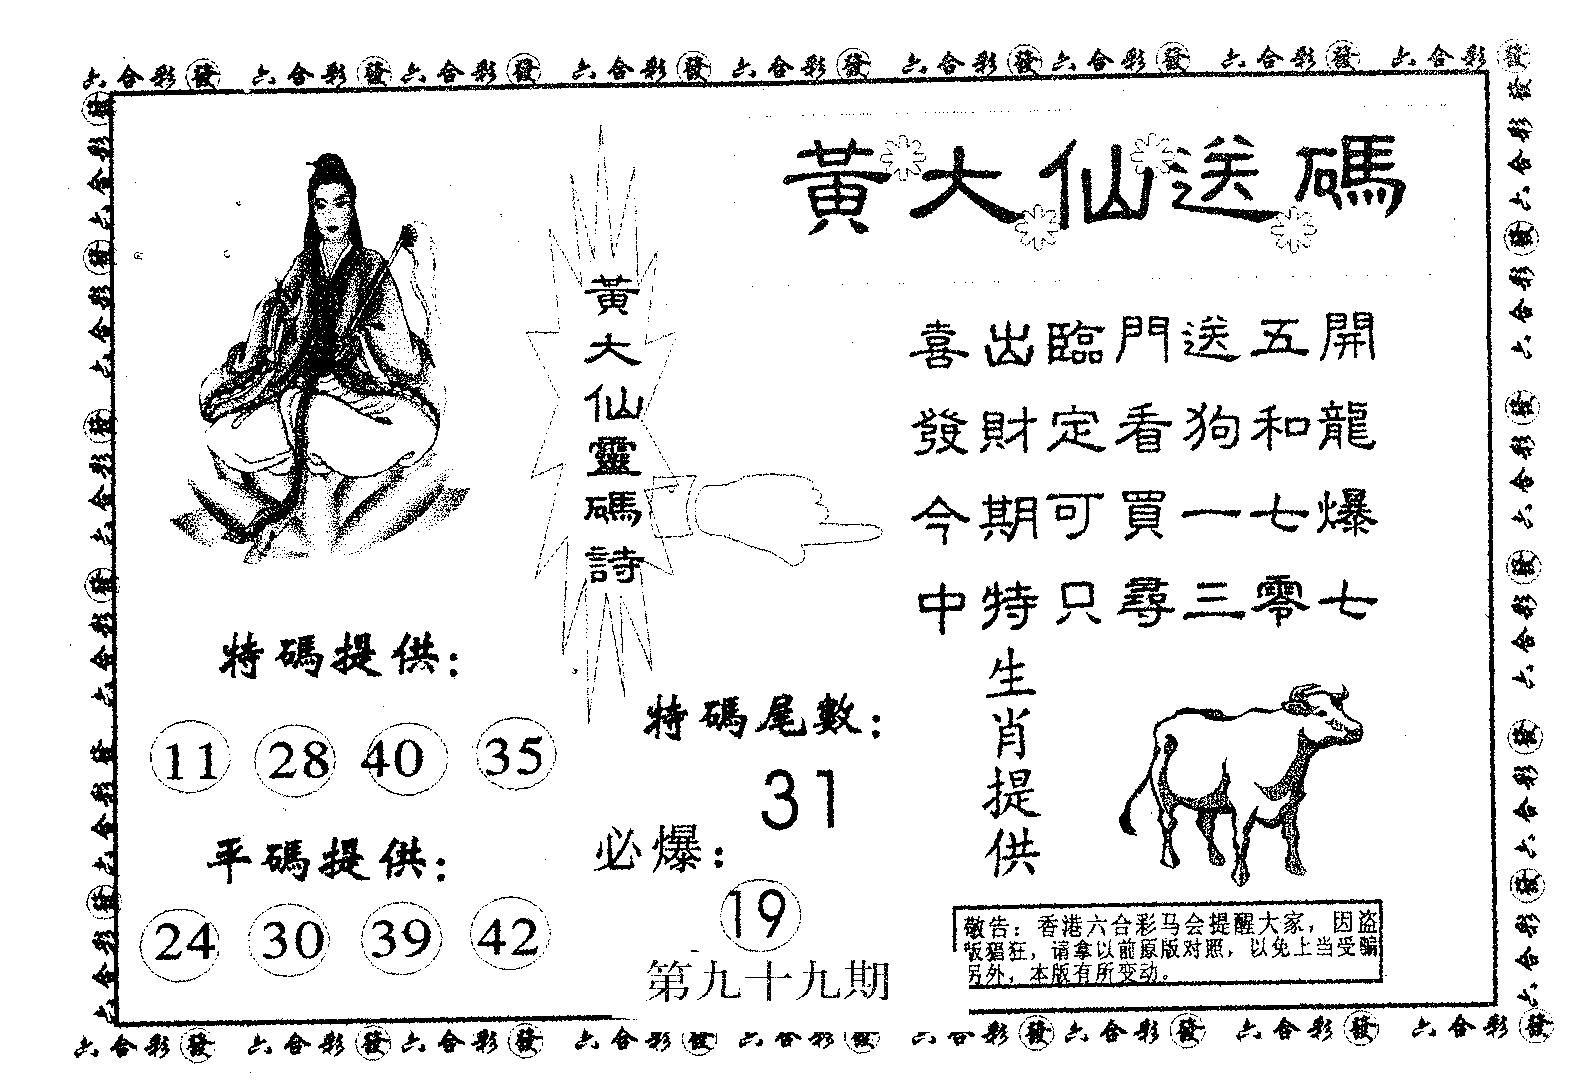 六合彩發 六合彩發 六合彩發 六合彩發 六合彩發 六合彩發 六合彩發 六合彩發 六合彩發
黃大仙送碼
黃大仙靈碼詩
喜出臨門送五開
發財定看狗和龍
今期可買一七爆
中特只尋三零七
特碼提供：
11 28 40 35
平碼提供：
24 30 39 42
特碼尾數：
31
必爆：
19
第九十九期
生肖提供
敬告：香港六合彩马会提醒大家，因盗
版猖狂，请拿以前原版对照，以免上当受骗
另外，本版有所变动。
六合彩發 六合彩發 六合彩發 六合彩發 六合彩發 六合彩發 六合彩發 六合彩發 六合彩發